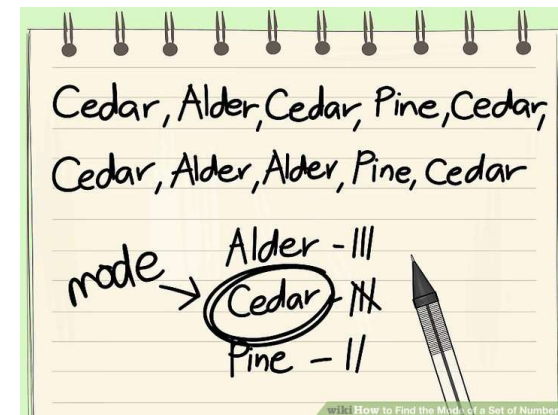 Cedar, Alder, Cedar, Pine, Cedar,
Cedar, Alder, Alder, Pine, Cedar
Alder - III
mode Cedar - 𝍸
Pine - II
wiki How to Find the Mode of a Set of Number